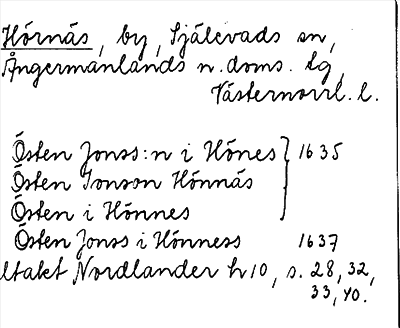 Hörnäs, by, Själevads sn,
Ångermanlands n. doms. tg,
Västernorrl. l.
Östen Jonss:n i Hönes } 1635
Östen Jonson Hönnäs
Östen i Hönnes
Östen Jonss i Hönness 1637
ltakt Nordlander h 10, s. 28, 32,
33, 40.